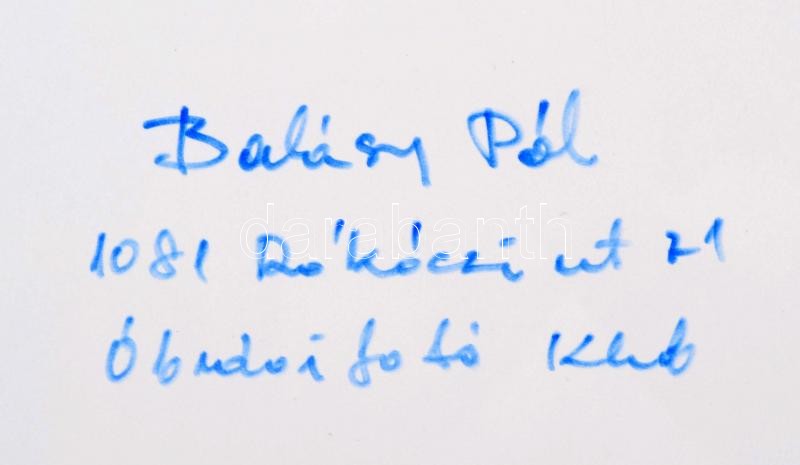 Balásy Pál
1081 Rákóczi ut 71
Óbudai fotó Klub
darabanth